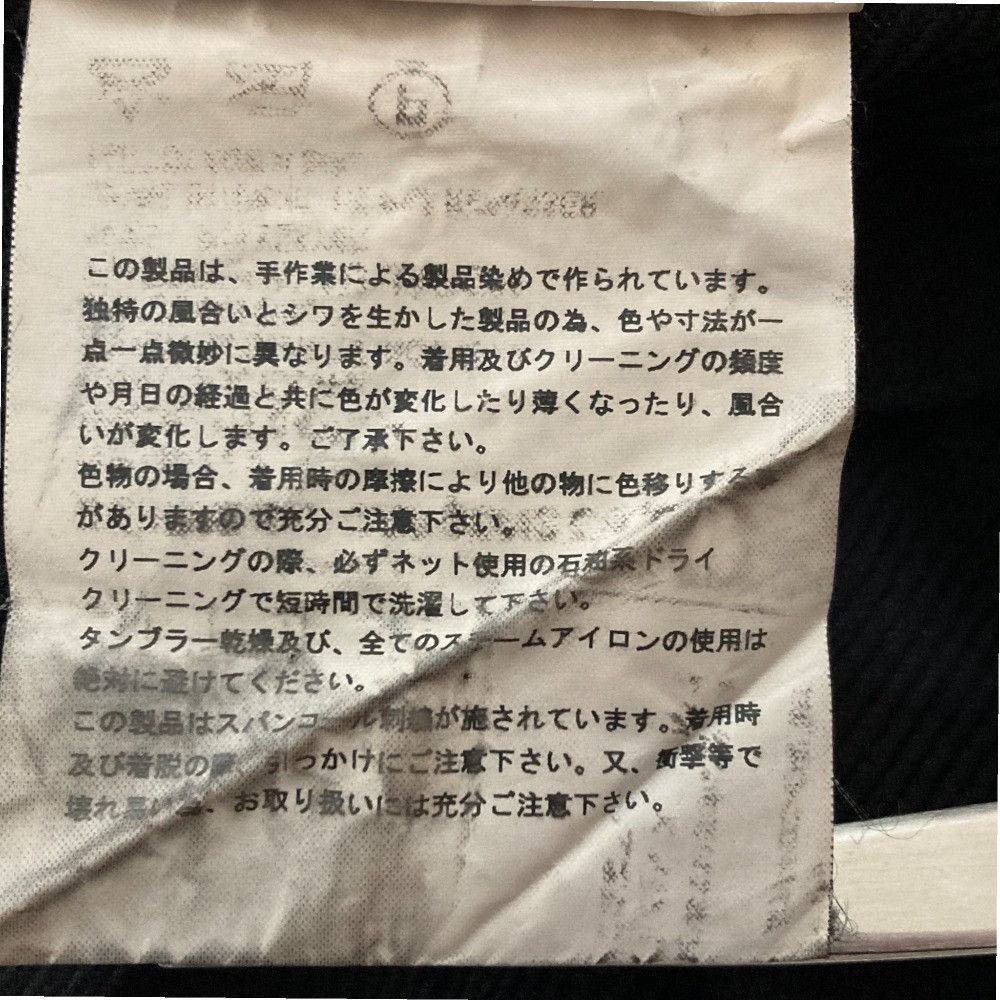 この製品は、手作業による製品染めで作られています。
独特の風合いとシワを生かした製品の為、色や寸法が一
点一点微妙に異なります。着用及びクリーニングの頻度
や月日の経過と共に色が変化したり薄くなったり、風合
いが変化します。ご了承下さい。
色物の場合、着用時の摩擦により他の物に色移りする
がありますので充分ご注意下さい。
クリーニングの際、必ずネット使用の石油系ドライ
クリーニングで短時間で洗濯して下さい。
タンブラー乾燥及び、全てのスチームアイロンの使用は
絶対に避けてください。
この製品はスパンコール刺繍が施されています。着用時
及び着脱の際、引っかけにご注意下さい。又、衝撃等で
壊れ易い為、お取り扱いには充分ご注意下さい。